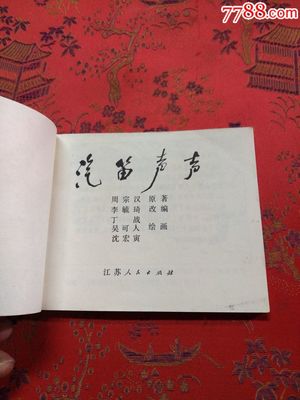 7788.com
中国收藏热线
汽笛声声
周宗汉 原著
李毓琦 改编
丁战
吴可人 绘画
沈宏寅
江苏人民出版社